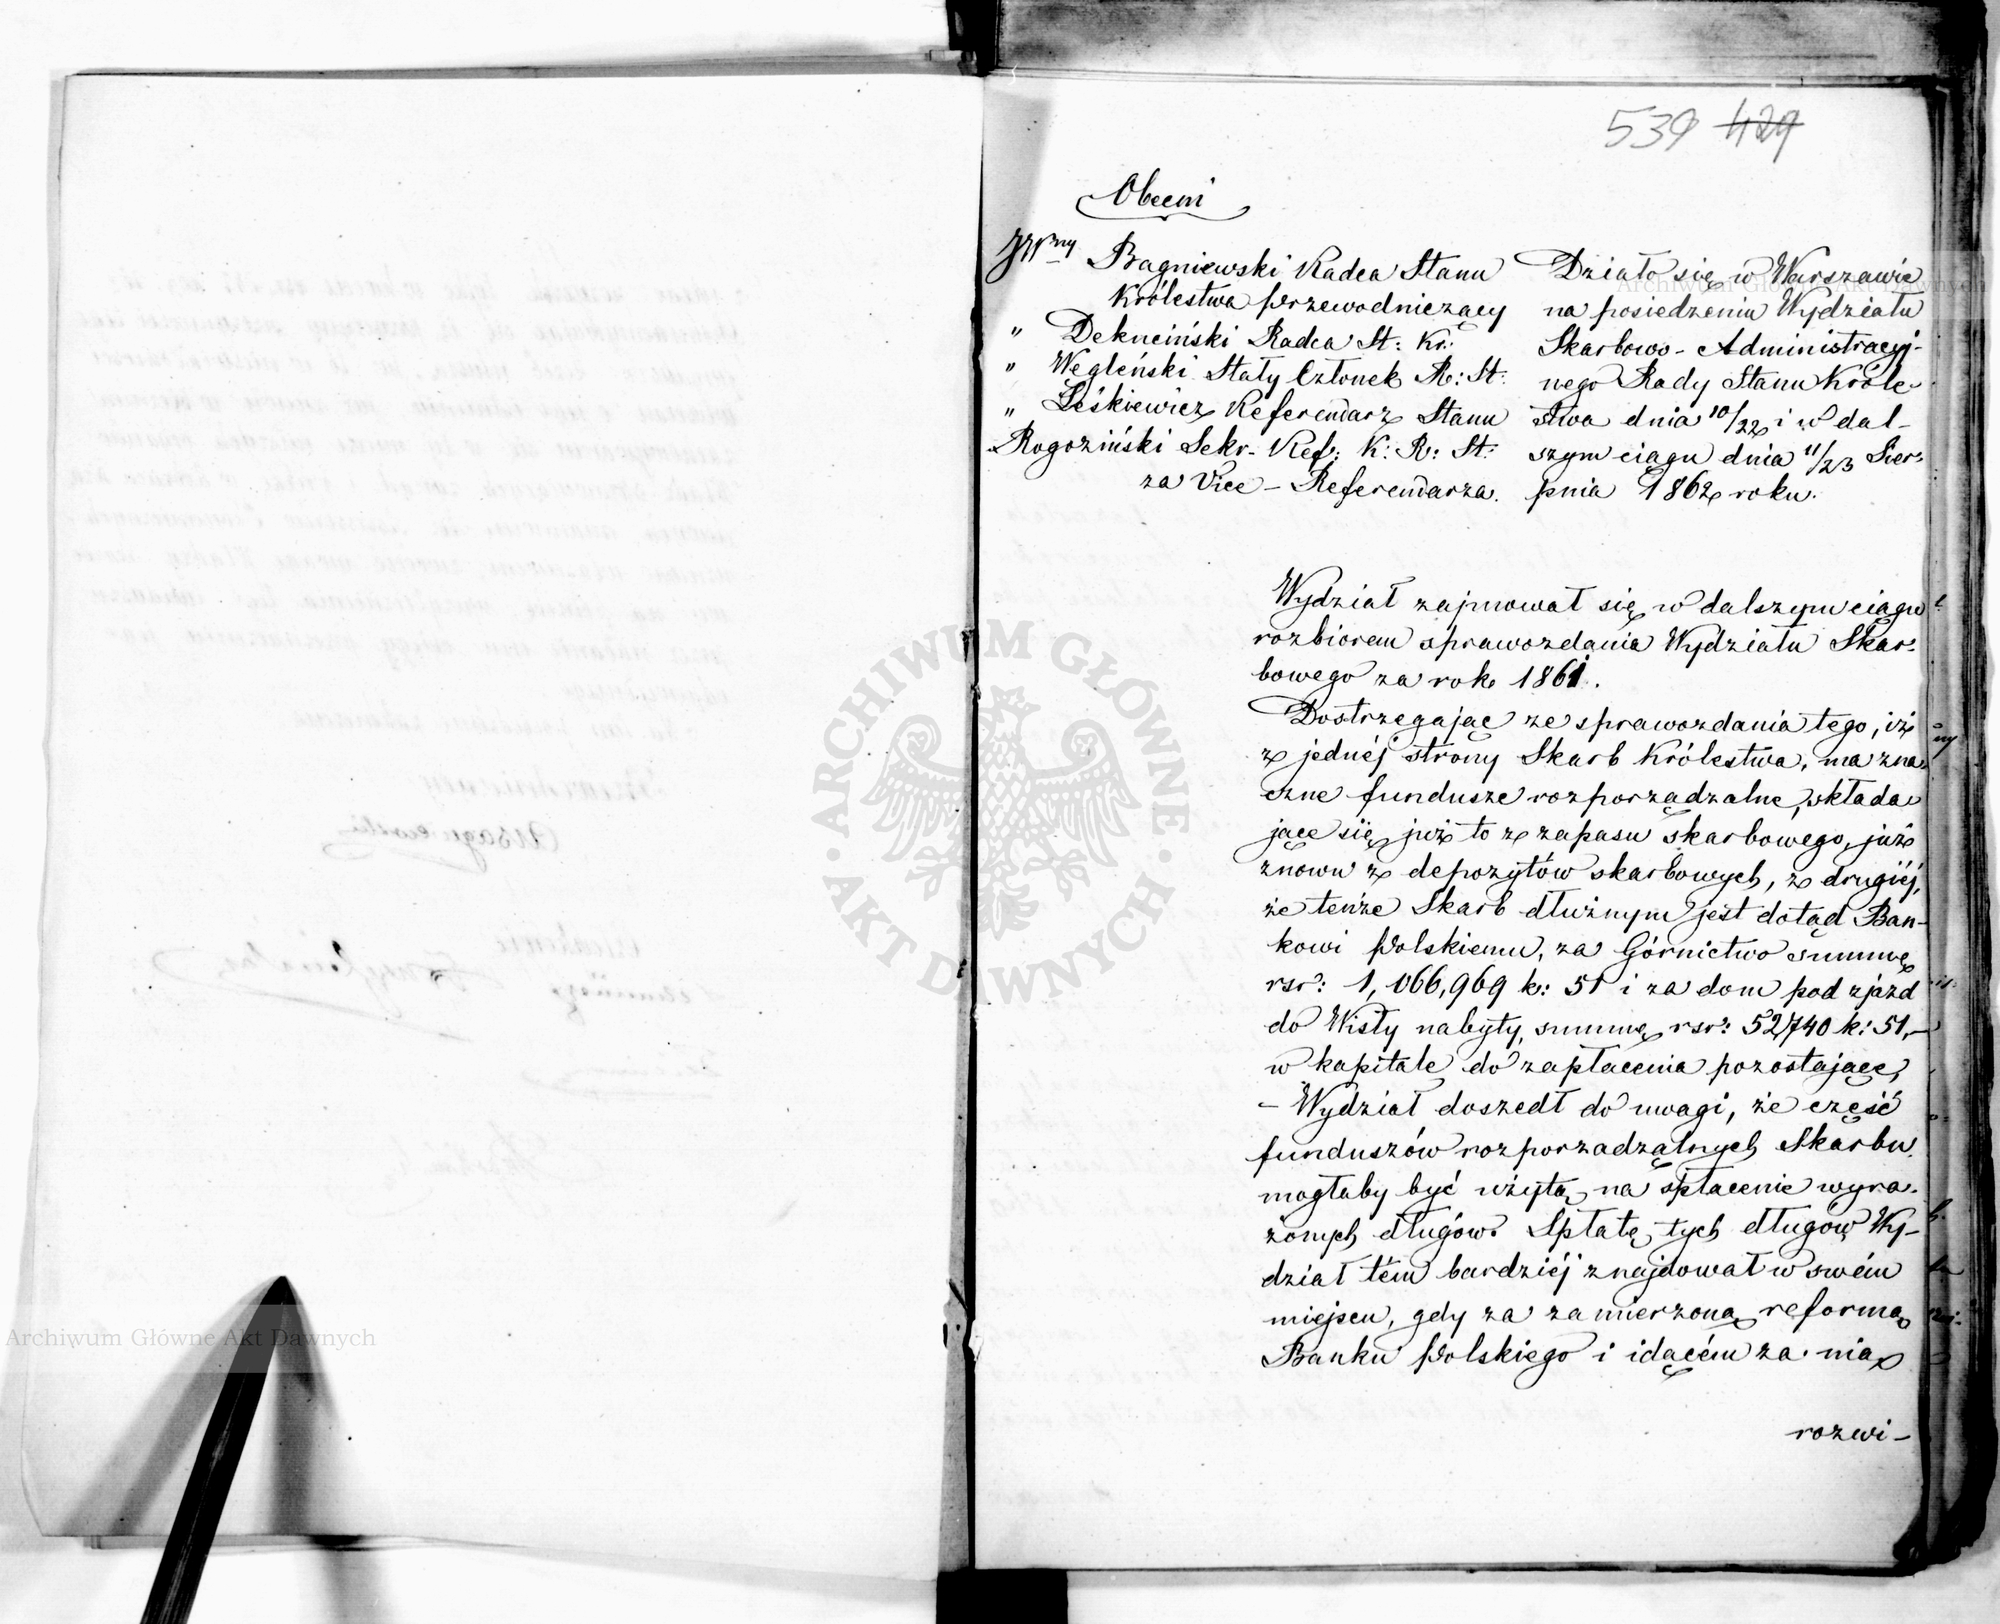 539 429
Obecni
JW^ny Bagniewski Radca Stanu
Królestwa Przewodniczący
" Dekuciński Radca St: Kr:
" Węgleński Stały Członek R: St:
" Leśkiewicz Referendarz Stanu
Rogoziński Sekr. Ref: K: R: St:
za Vice – Referendarza.
Działo się w Warszawie
na posiedzeniu Wydziału
Skarbowo – Administracyj-
nego Rady Stanu Króle-
stwa dnia 10/22 i w dal-
szym ciągu dnia 11/23 Sier-
pnia 1862 roku.
Wydział zajmował się w dalszym ciągu
rozbiorem sprawozdania Wydziału Skar-
bowego za rok 1861.
Dostrzegając ze sprawozdania tego, iż
z jednéj strony Skarb Królestwa, ma zna-
czne fundusze rozporządzalne, składa-
jące się już to z zapasu skarbowego, już
znowu z depozytów skarbowych, z drugiéj,
że tenże Skarb dłużnym jest dotąd Ban-
kowi Polskiemu, za Górnictwo summę
rsr: 1,066,969 k: 51 i za dom pod zjazd
do Wisły nabyty, summę rsr: 52740 k: 51,–
w kapitale do zapłacenia pozostające,
– Wydział doszedł do uwagi, że część
funduszów rozporządzalnych Skarbu
mogłaby być użytą na spłacenie wyra-
żonych długów. Spłatę tych długów Wy-
dział tém bardziéj znajdował w swém
miejscu, gdy za zamierzoną reformą
Banku Polskiego i idącém za nią
rozwi-
ARCHIWUM GŁÓWNE
AKT DAWNYCH
Archiwum Główne Akt Dawnych
Archiwum Główne Akt Dawnych